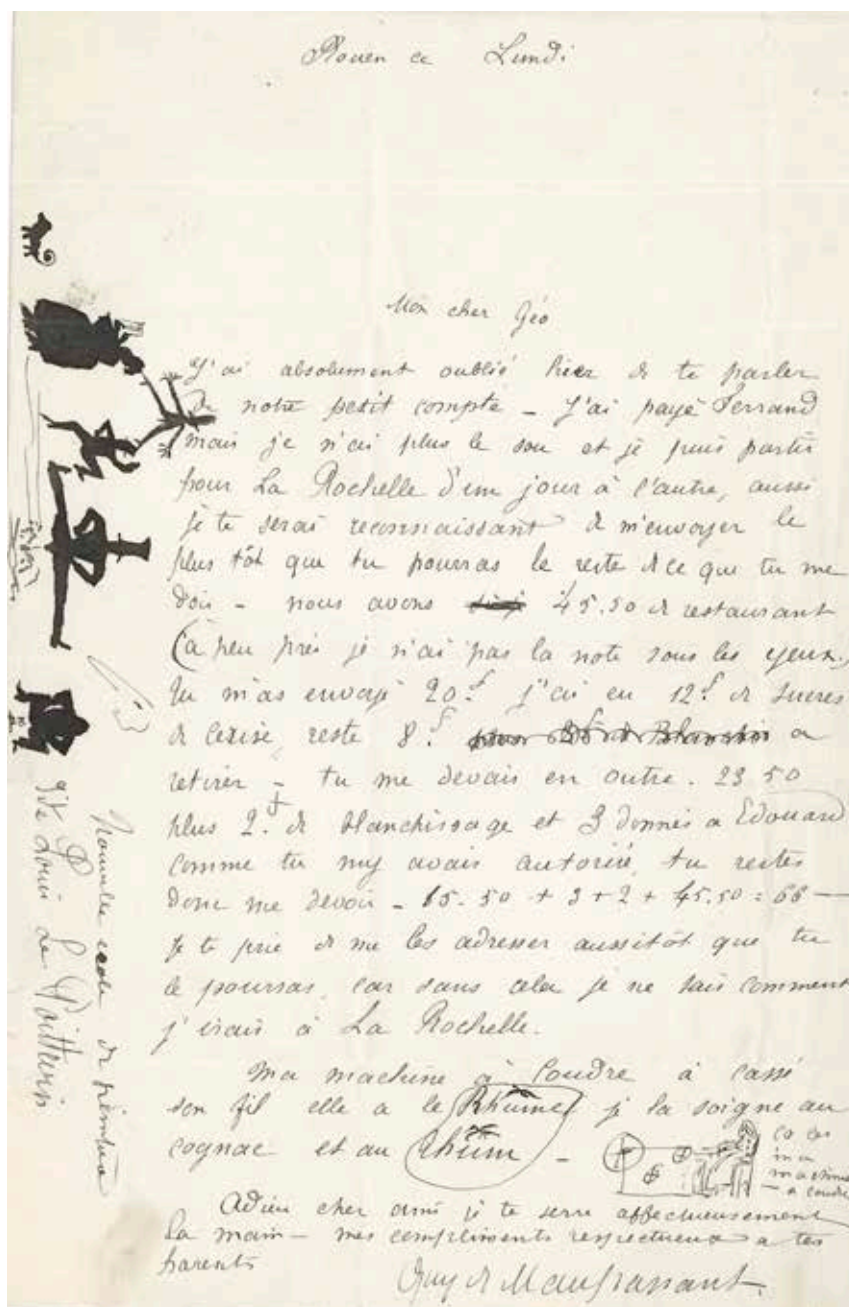 Rouen ce Lundi
Mon cher Géo
J'ai absolument oublié hier de te parler
de notre petit compte – J'ai payé Ferrand
mais je n'ai plus le sou et je puis partir
pour La Rochelle d'un jour à l'autre, aussi
je te serai reconnaissant de m'envoyer le
plus tôt que tu pourras le reste de ce que tu me
dois – nous avons 45.50 de restaurant
(à peu près je n'ai pas la note sous les yeux)
Tu m'as envoyé 20.f j'ai eu 12.f de sucres
de cerise, reste 8.f a
retirer – tu me devais en outre. 23 50
plus 2.f de blanchissage et 3 donnés a Edouard
comme tu m'y avais autorisé, tu restes
donc me devoir – 15.50 + 3 + 2 + 45.50 = 66 —
Je te prie de me les adresser aussitôt que tu
le pourras, car sans cela je ne sais comment
j'irais à La Rochelle.
Ma machine à coudre à cassé
son fil elle a le Rhume je la soigne au
cognac et au rhum –
ma
machine
a coudre
Adieu cher ami je te serre affectueusement
la main – mes compliments respectueux a tes
parents
Guy de Maupassant.
Nouvelle école de peinture
dite Louis Le Poittevin